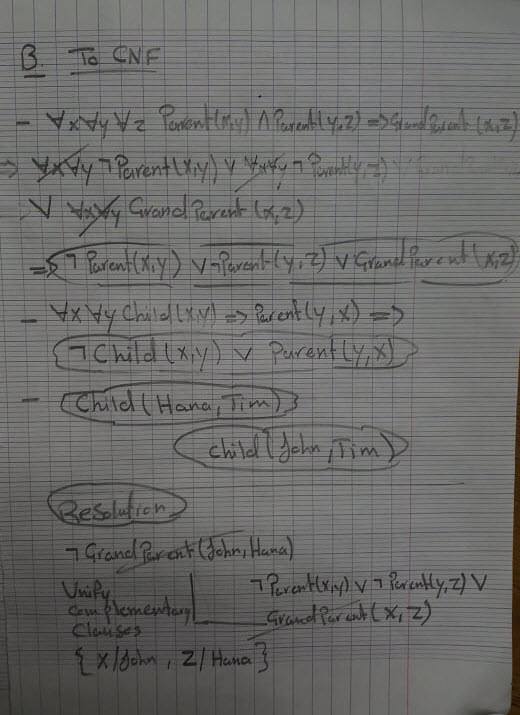 B. To CNF
- ∀x∀y∀z Parent(x,y) ∧ Parent(y,z) => GrandParent(x,z)
=> ∀x∀y ¬Parent(x,y) ∨ ∀x∀y ¬Parent(y,z)
∨ ∀x∀y GrandParent(x,z)
=> ¬Parent(x,y) ∨ ¬Parent(y,z) ∨ GrandParent(x,z)
- ∀x∀y Child(x,y) => Parent(y,x) =>
{¬Child(x,y) ∨ Parent(y,x)}
- {Child(Hana,Tim)}
child(John,Tim)
Resolution
¬GrandParent(John,Hana)
Unify ¬Parent(x,y) ∨ ¬Parent(y,z) ∨
complementary GrandParent(x,z)
clauses
{x/John, z/Hana}